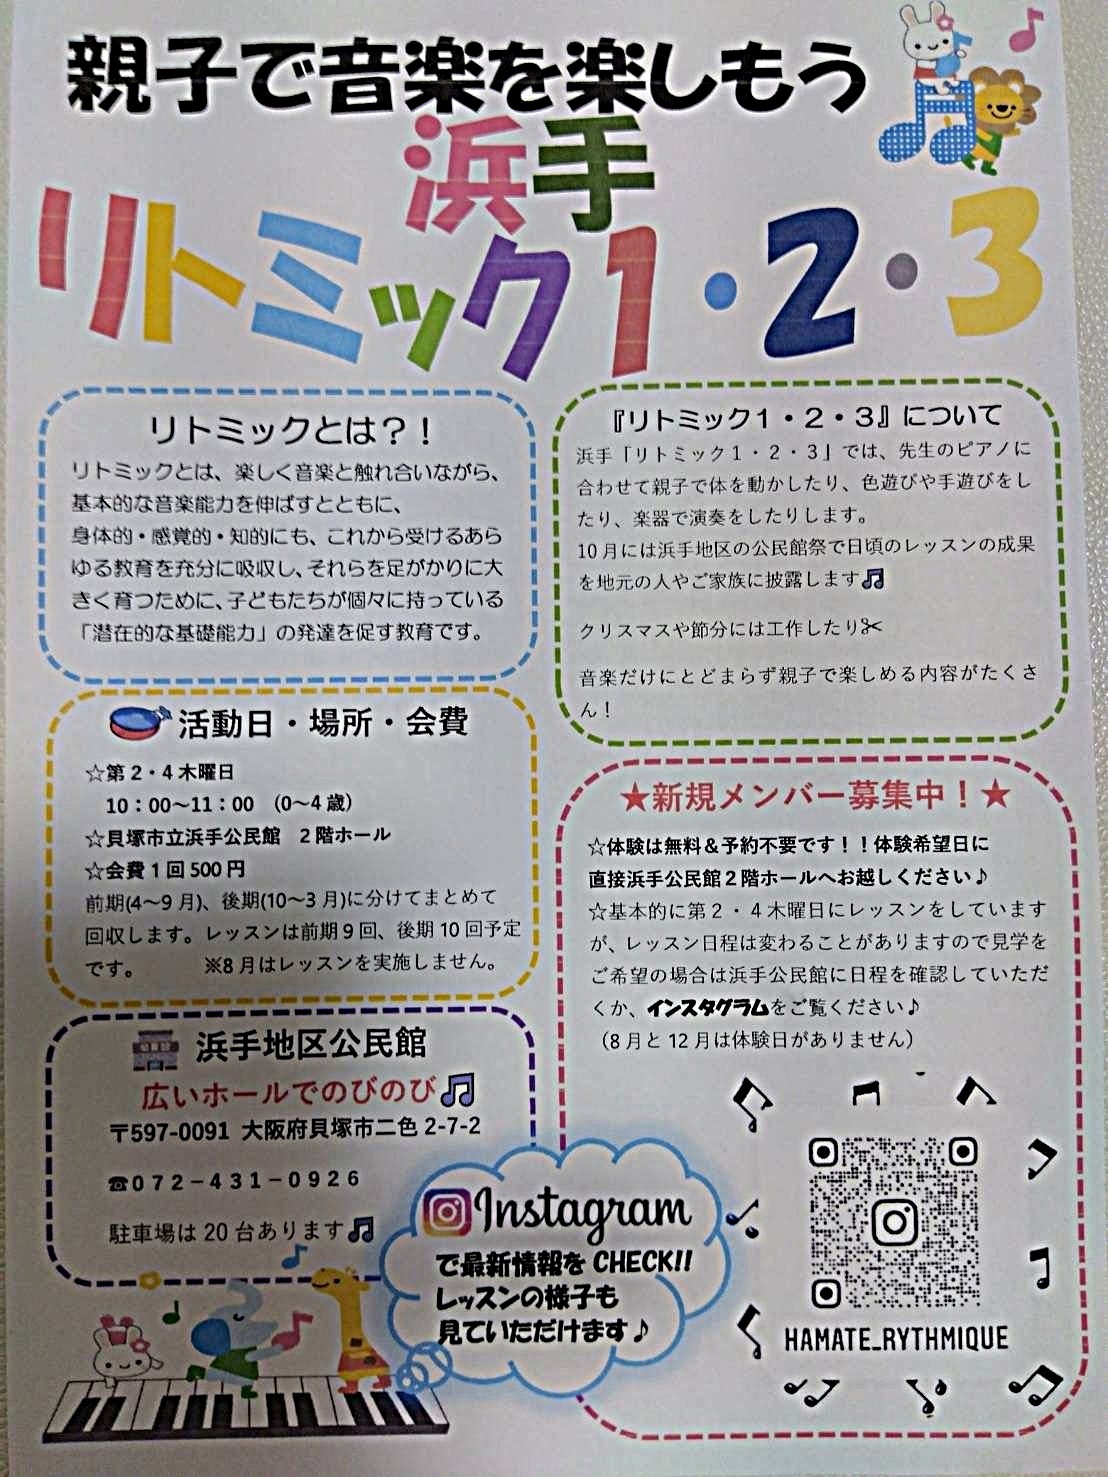 親子で音楽を楽しもう
浜手
リトミック1・2・3
リトミックとは?!
リトミックとは、楽しく音楽と触れ合いながら、
基本的な音楽能力を伸ばすとともに、
身体的・感覚的・知的にも、これから受けるあら
ゆる教育を充分に吸収し、それらを足がかりに大
きく育つために、子どもたちが個々に持っている
「潜在的な基礎能力」の発達を促す教育です。
『リトミック1・2・3』について
浜手「リトミック1・2・3」では、先生のピアノに
合わせて親子で体を動かしたり、色遊びや手遊びをし
たり、楽器で演奏をしたりします。
10月には浜手地区の公民館祭で日頃のレッスンの成果
を地元の人やご家族に披露します🎵
クリスマスや節分には工作したり✂
音楽だけにとどまらず親子で楽しめる内容がたくさ
ん!
活動日・場所・会費
☆第2・4木曜日
10:00~11:00 (0~4歳)
☆貝塚市立浜手公民館 2階ホール
☆会費1回500円
前期(4~9月)、後期(10~3月)に分けてまとめて
回収します。レッスンは前期9回、後期10回予定
です。 ※8月はレッスンを実施しません。
★新規メンバー募集中!★
☆体験は無料&予約不要です!!体験希望日に
直接浜手公民館2階ホールへお越しください♪
☆基本的に第2・4木曜日にレッスンをしています
が、レッスン日程は変わることがありますので見学を
ご希望の場合は浜手公民館に日程を確認していただ
くか、インスタグラムをご覧ください♪
(8月と12月は体験日がありません)
浜手地区公民館
広いホールでのびのび🎵
〒597-0091 大阪府貝塚市二色2-7-2
☎072-431-0926
駐車場は20台あります🎵
Instagram
で最新情報をCHECK!!
レッスンの様子も
見ていただけます♪
HAMATE_RYTHMIQUE